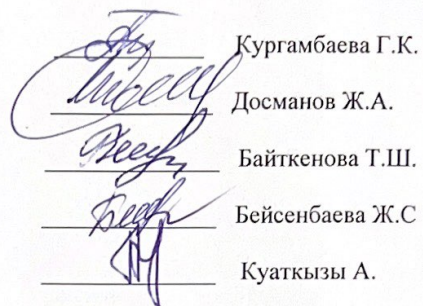 Кургамбаева Г.К.
Досманов Ж.А.
Байткенова Т.Ш.
Бейсенбаева Ж.С
Куаткызы А.